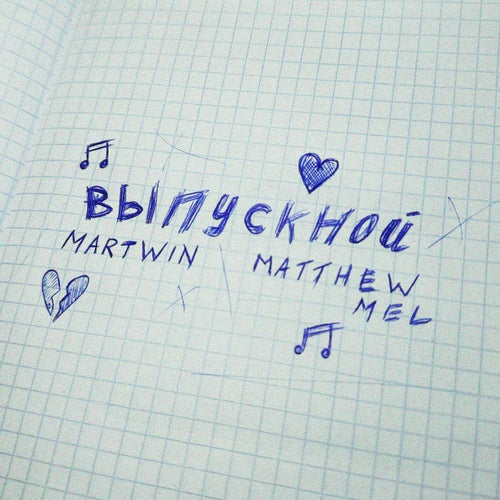 ВЫПУСКНОЙ
MARTWIN MATTHEW
MEL